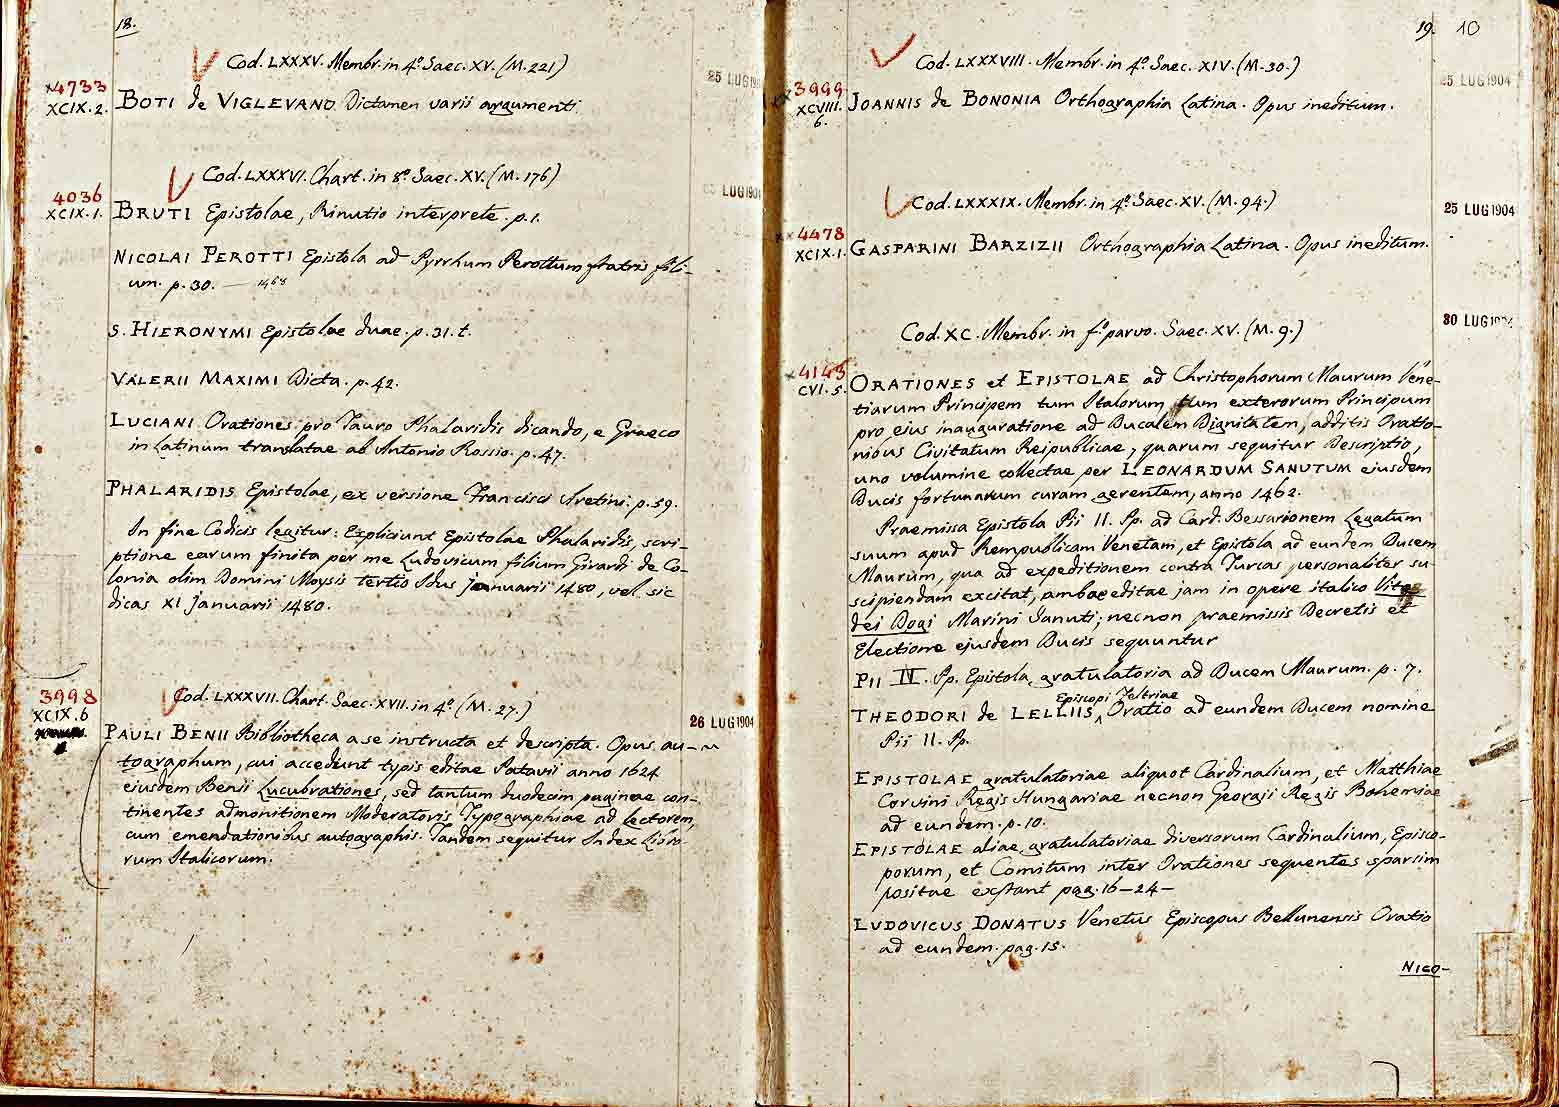 18.
Cod. LXXXV. Membr. in 4º. Saec. XV. (M. 221)
25 LUG 190
4733
XCIX. 2.
BOTI de VIGLEVANO Dictamen varii argumenti
Cod. LXXXVI. Chart. in 8º. Saec. XV. (M. 176)
LUG 190
4036
XCIX. 1.
BRUTI Epistolae, Rinutio interprete. p. 1.
NICOLAI PEROTTI Epistola ad Pyrrhum Perottum fratris fili-
um. p. 30. — 1468
S. HIERONYMI Epistolae duae. p. 31. t.
VALERII MAXIMI Dicta. p. 42.
LUCIANI Orationes pro Tauro Phalaridis dicando, e Graeco
in Latinum translatae ab Antonio Rossio. p. 47.
PHALARIDIS Epistolae, ex versione Francisci Aretini. p. 59.
In fine Codicis legitur: Expliciunt Epistolae Phalaridis, scri-
ptione earum finita per me Ludovicum filium Girardi de Co-
lonia olim Domini Moysis tertio Idus januarii 1480, vel sic
dicas XI januarii 1480.
3998
XCIX. 6
Cod. LXXXVII. Chart. Saec. XVII. in 4º (M. 27.)
26 LUG 1904
PAULI BENII Bibliotheca a se instructa et descripta. Opus au-
tographum, cui accedunt typis editae Patavii anno 1624
ejusdem Benii Lucubrationes, sed tantum duodecim paginae con-
tinentes admonitionem Moderatoris Typographiae ad Lectorem,
cum emendationibus autographis. Tandem sequitur Index Libro-
rum Italicorum.
19. 10
Cod. LXXXVIII. Membr. in 4º. Saec. XIV. (M. 30.)
25 LUG 1904
3999
XCVIII.
6.
JOANNIS de BONONIA Orthographia Latina. Opus ineditum.
Cod. LXXXIX. Membr. in 4º. Saec. XV. (M. 94.)
25 LUG 1904
4478
XCIX. 1.
GASPARINI BARZIZII Orthographia Latina. Opus ineditum.
Cod. XC. Membr. in fº. parvo. Saec. XV. (M. 9.)
30 LUG 1904
4143
CVI. 5.
ORATIONES et EPISTOLAE ad Christophorum Maurum Vene-
tiarum Principem tum Italorum tum exterorum Principum
pro ejus inauguratione ad Ducalem Dignitatem, additis Oratio-
nibus Civitatum Reipublicae, quarum sequitur Descriptio,
uno volumine collectae per LEONARDUM SANUTUM ejusdem
Ducis fortunarum curam gerentem, anno 1462.
Praemissa Epistola Pii II. Pp. ad Card. Bessarionem Legatum
suum apud Rempublicam Venetam, et Epistola ad eundem Ducem
Maurum, qua ad expeditionem contra Turcas personaliter su-
scipiendam excitat, ambae editae jam in opere italico Vite
dei Dogi Marini Sanuti; necnon praemissis Decretis et
Electione ejusdem Ducis sequuntur
PII II. Pp. Epistola gratulatoria ad Ducem Maurum. p. 7.
Episcopi Feltriae
THEODORI de LELLIIS ^ Oratio ad eundem Ducem nomine
Pii II. Pp.
EPISTOLAE gratulatoriae aliquot Cardinalium, et Matthiae
Corvini Regis Hungariae necnon Georgii Regis Bohemiae
ad eundem. p. 10.
EPISTOLAE aliae gratulatoriae diversorum Cardinalium, Episco-
porum, et Comitum inter Orationes sequentes sparsim
positae exstant pag. 16–24–
LUDOVICUS DONATUS Venetus Episcopus Bellunensis Oratio
ad eundem. pag. 15.
NICO-